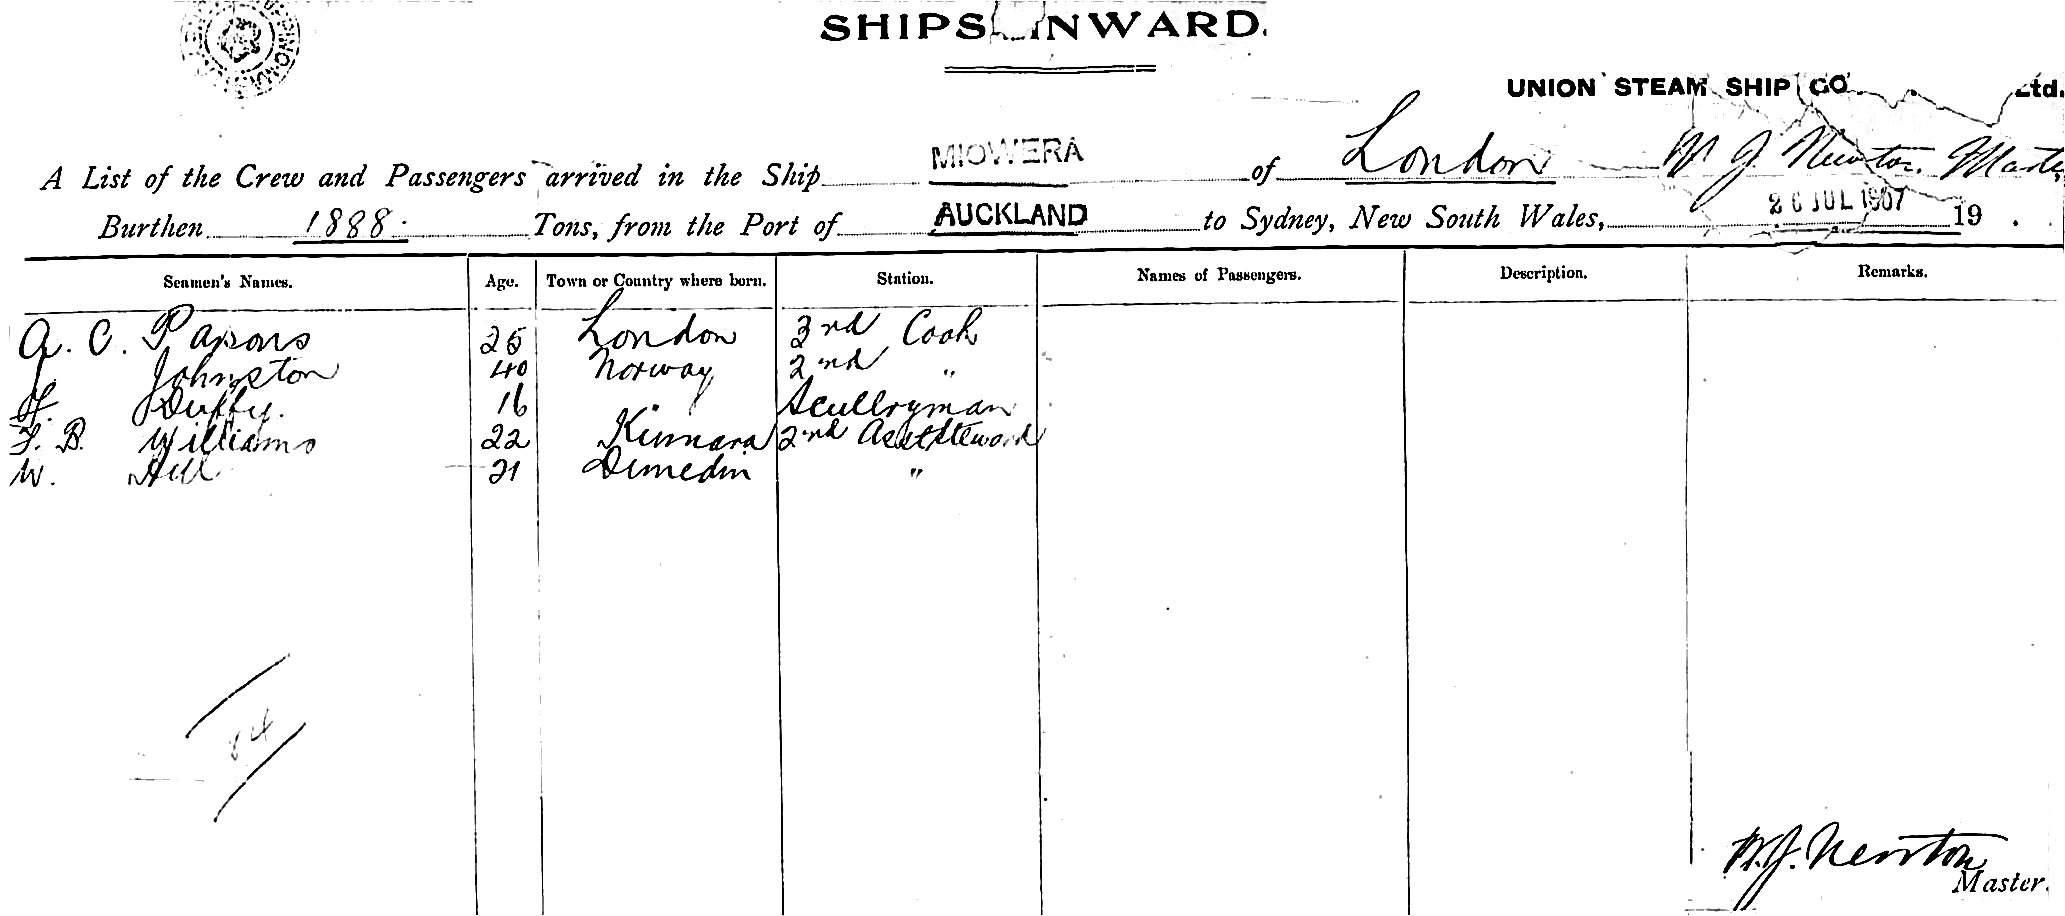 SHIPS INWARD.
UNION STEAM SHIP CO Ltd.
A List of the Crew and Passengers arrived in the Ship MIOWERA of London W J Newton. Master
Burthen 1888. Tons, from the Port of AUCKLAND to Sydney, New South Wales, 26 JUL 1907 19 .
Seamen's Names. Age. Town or Country where born. Station. Names of Passengers. Description. Remarks.
A. C. Parsons 25 London 3rd Cook
J Johnston 40 Norway 2nd "
Duffy. 16 Scullryman
F. B. Williams 22 Kumara 2nd Asst Steward
W. Hill 21 Dunedin "
84
W. J. Newton
Master.